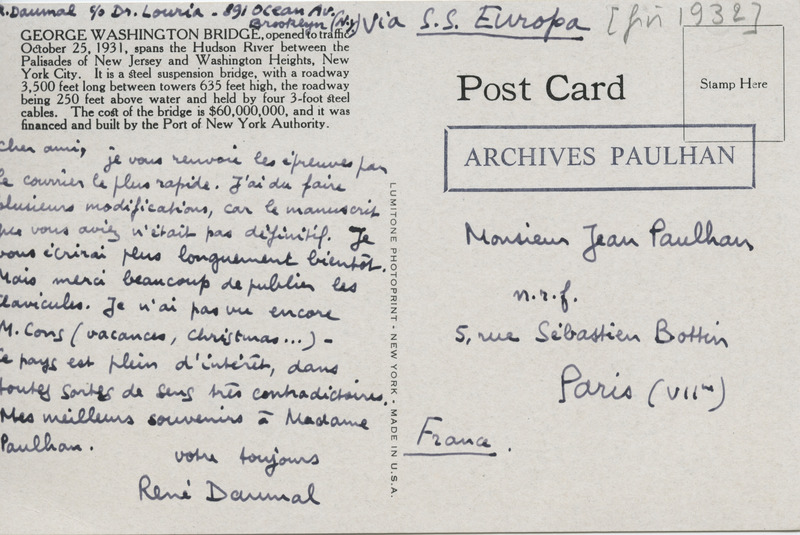 R. Daumal c/o Dr. Louria - 891 Ocean Av.
Brooklyn (N.Y.)
Via S.S. Europa [fin 1932]
GEORGE WASHINGTON BRIDGE, opened to traffic
October 25, 1931, spans the Hudson River between the
Palisades of New Jersey and Washington Heights, New
York City. It is a steel suspension bridge, with a roadway
3,500 feet long between towers 635 feet high, the roadway
being 250 feet above water and held by four 3-foot steel
cables. The cost of the bridge is $60,000,000, and it was
financed and built by the Port of New York Authority.
Post Card
Stamp Here
ARCHIVES PAULHAN
Cher ami,
je vous renvoie les épreuves par
le courrier le plus rapide. J'ai du faire
plusieurs modifications, car le manuscrit
que vous aviez n'était pas définitif. Je
vous écrirai plus longuement bientôt.
Mais merci beaucoup de publier les
Clavicules. Je n'ai pas vu encore
M. Cons (vacances, Christmas...) -
Ce pays est plein d'intérêt, dans
toutes sortes de sens très contradictoires.
Mes meilleurs souvenirs à Madame
Paulhan.
votre toujours
René Daumal
LUMITONE PHOTOPRINT - NEW YORK - MADE IN U.S.A.
Monsieur Jean Paulhan
n.r.f.
5, rue Sébastien Bottin
Paris (VIIme)
France.